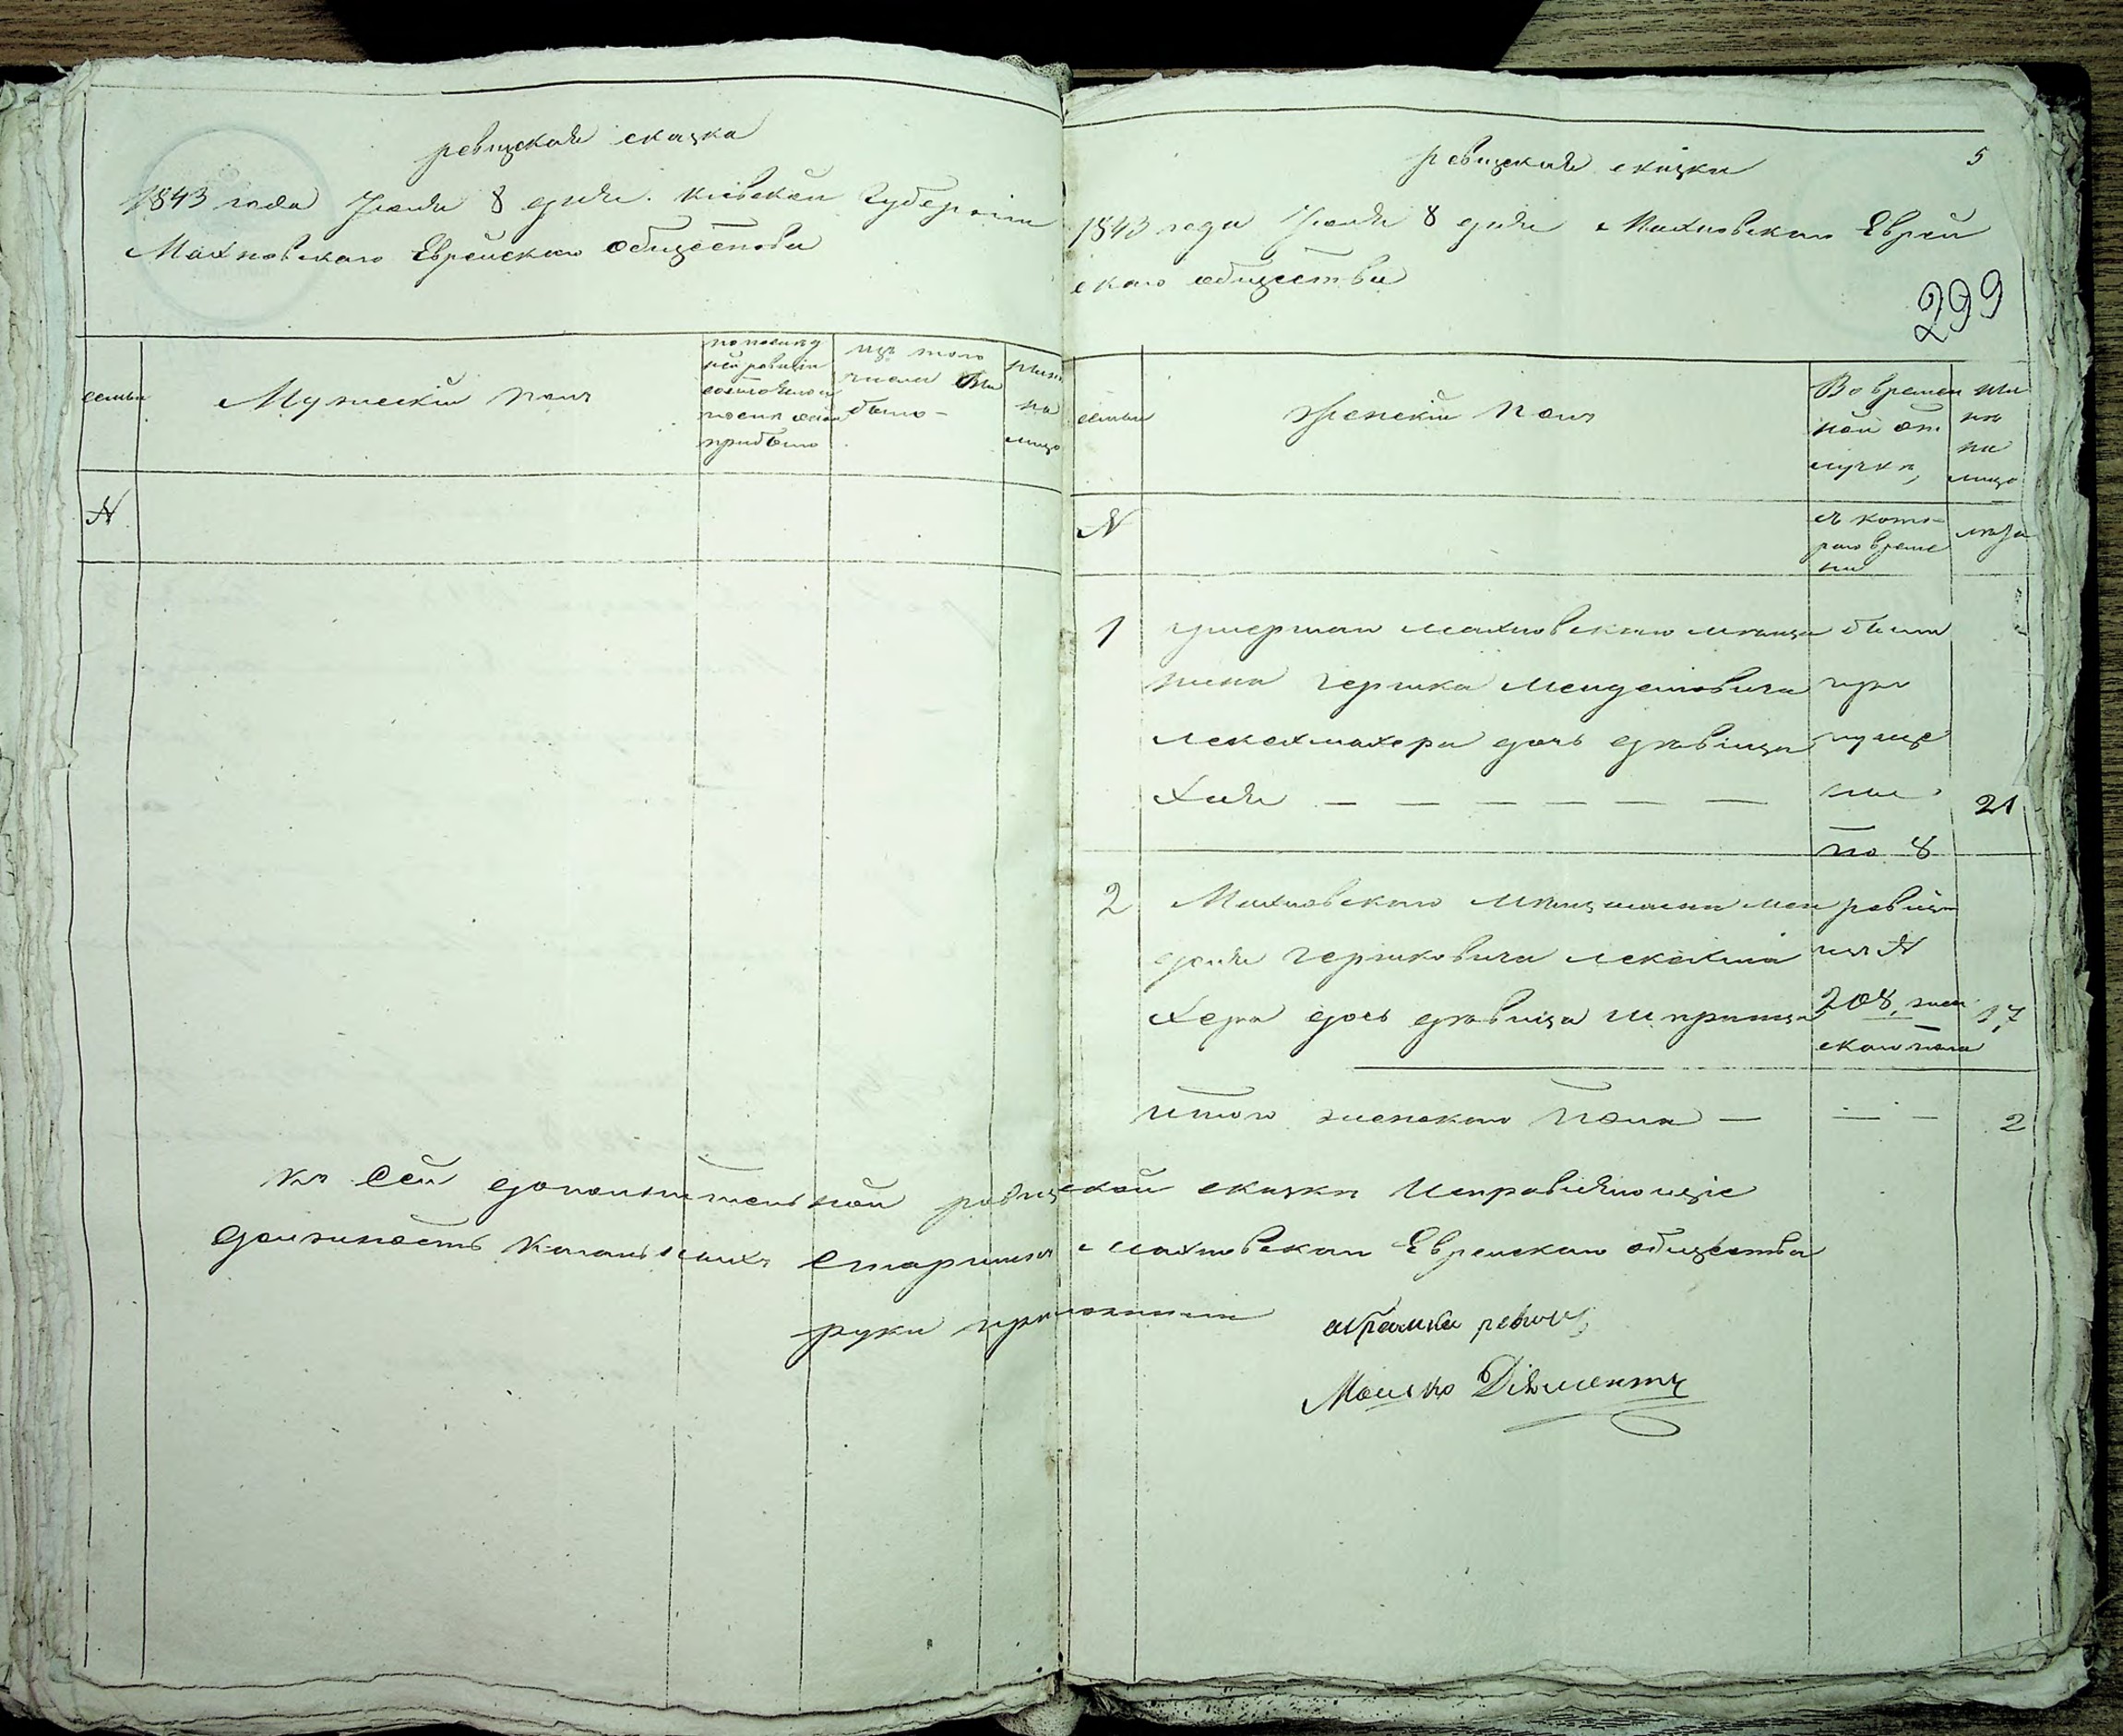 ревизская сказка
1843 года Июля 8 дня. Кіевской Губерніи
Махновскаго Еврейскаго общества
семьи
Мужескій полъ
по послед
ней ревизіи
состояло и
после оной
прибыло
изъ того
числа вы
было
ныне
на
лицо
№
ревизская сказка
5
1843 года Июля 8 дня Махновскаго Еврей
скаго общества
299
семьи
Женскій полъ
Во времен
ной от
лучке,
ны
не
на
лицо
№
съ кото-
раго време
ни
лета
1 умершаго махновскаго мещан
нина Гершка Менделовича
лекахмахера дочь девица
Хая — — — — — — 21
были
про
пуще
ны
по 8
2 Махновскаго мещанина Мен
деля Гершковича лекахма
хера дочь девица Шпринца 17
ревизіи
изъ №
208, жен
скаго пола
итого женскаго пола — — — 2
Къ сей дополнительной ревизской сказки Исправляющіе
должность кагальныхъ старшинъ махновскаго Еврейскаго общества
руки приложили
Мошко Діяментъ